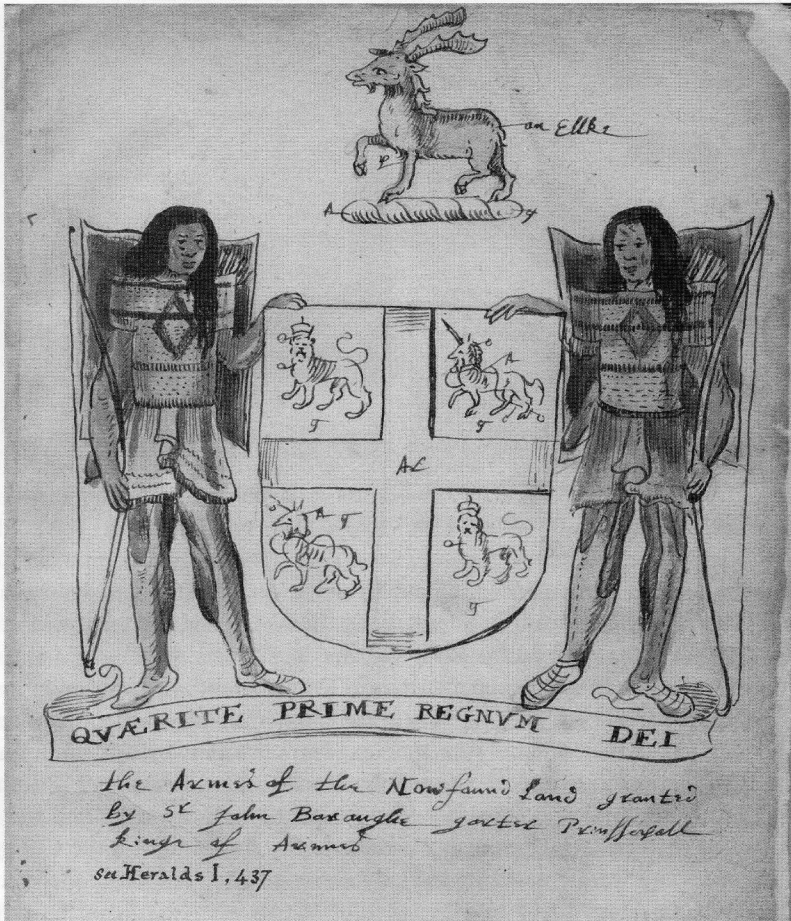 an Ellke
A
QVÆRITE PRIME REGNVM DEI
the Armes of the Nowfound Land granted
by Sr John Baroughe garter Prinssepall
kinge of Armes
see Heralds I, 437